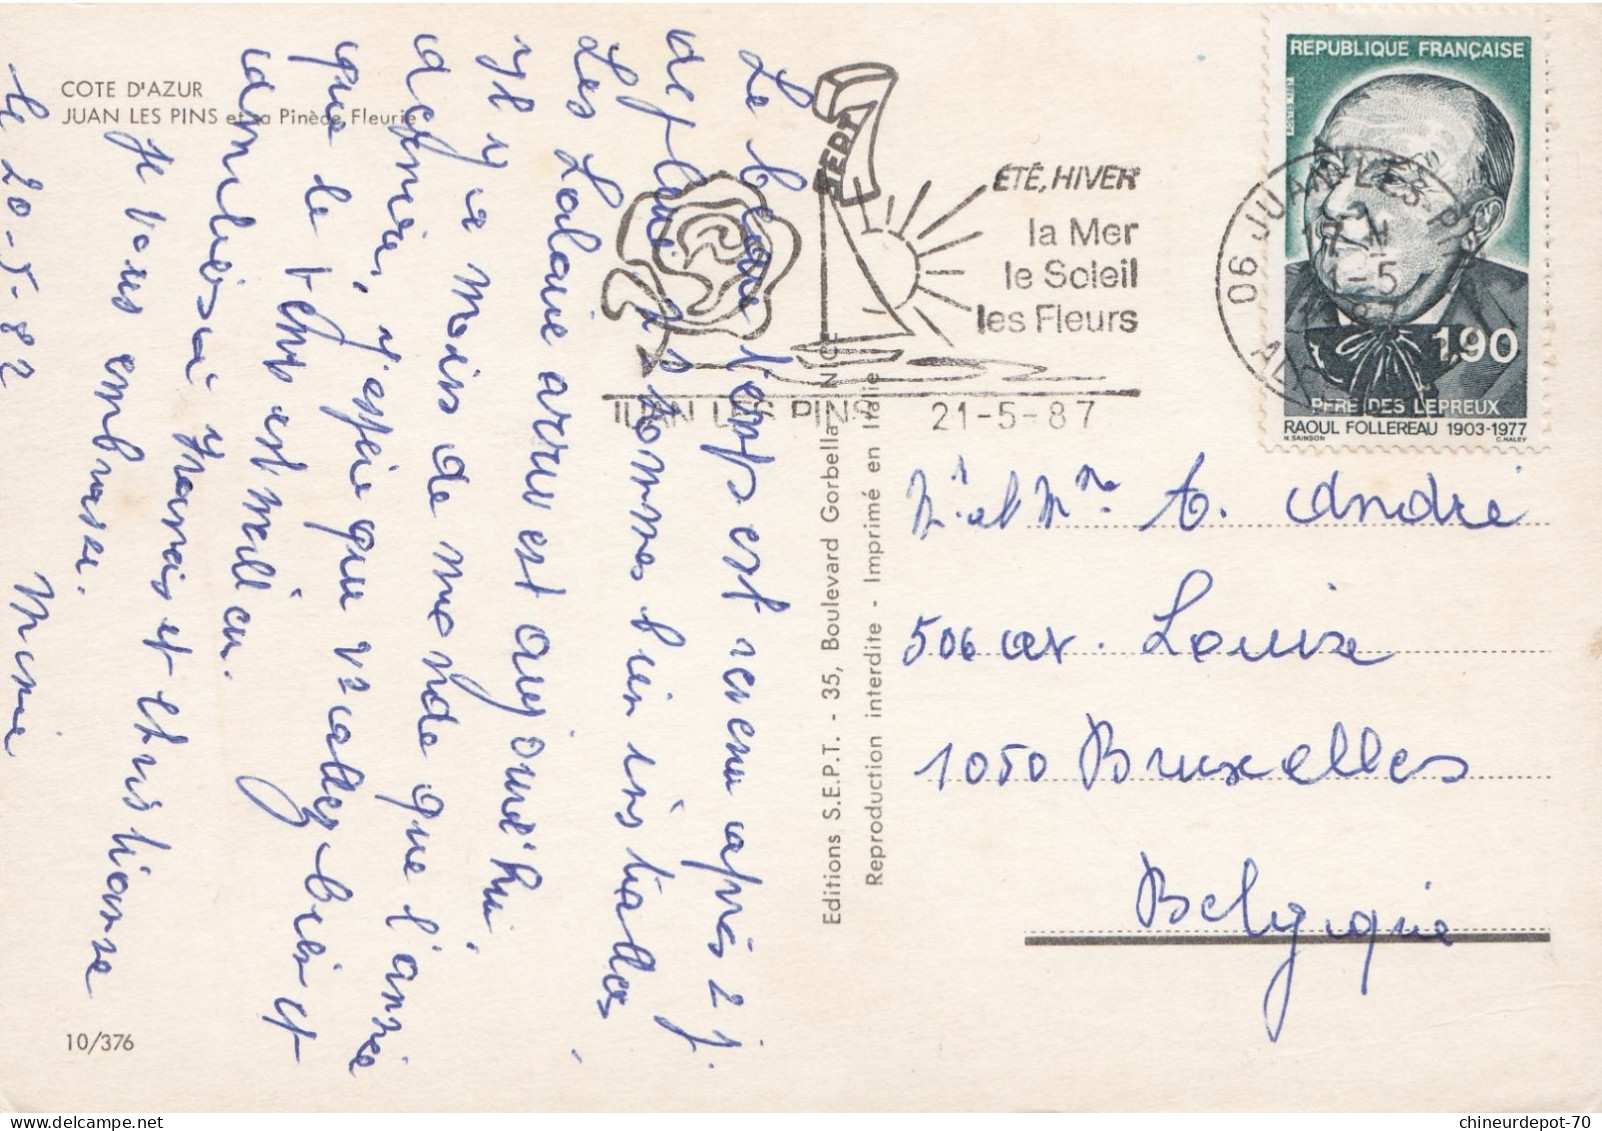 COTE D'AZUR
JUAN LES PINS et sa Pinède Fleurie
Le beau temps est revenu après 2 j.
de pluie
sommes bien installés
Les Lalaue arrivent aujourd'hui.
il y a moins de monde que l'année
dernière, j'espère que vs allez bien et
que le temps est meilleur.
ici
Je vous embrasse.
Francis et Christianne
le 20-5-87
Mimi
10/376
Editions S.E.P.T. - 35, Boulevard Gorbella NICE
Reproduction interdite - Imprimé en Italie
SEPT
ÉTÉ, HIVER
la Mer
le Soleil
les Fleurs
JUAN LES PINS 21-5-87
REPUBLIQUE FRANÇAISE
1,90
PERE DES LEPREUX
RAOUL FOLLEREAU 1903-1977
H. SAINSON C. HALEY
06 JUAN-LES-PINS
Mr et Mme A. André
506 av. Louise
1050 Bruxelles
Belgique
chineurdepot-70